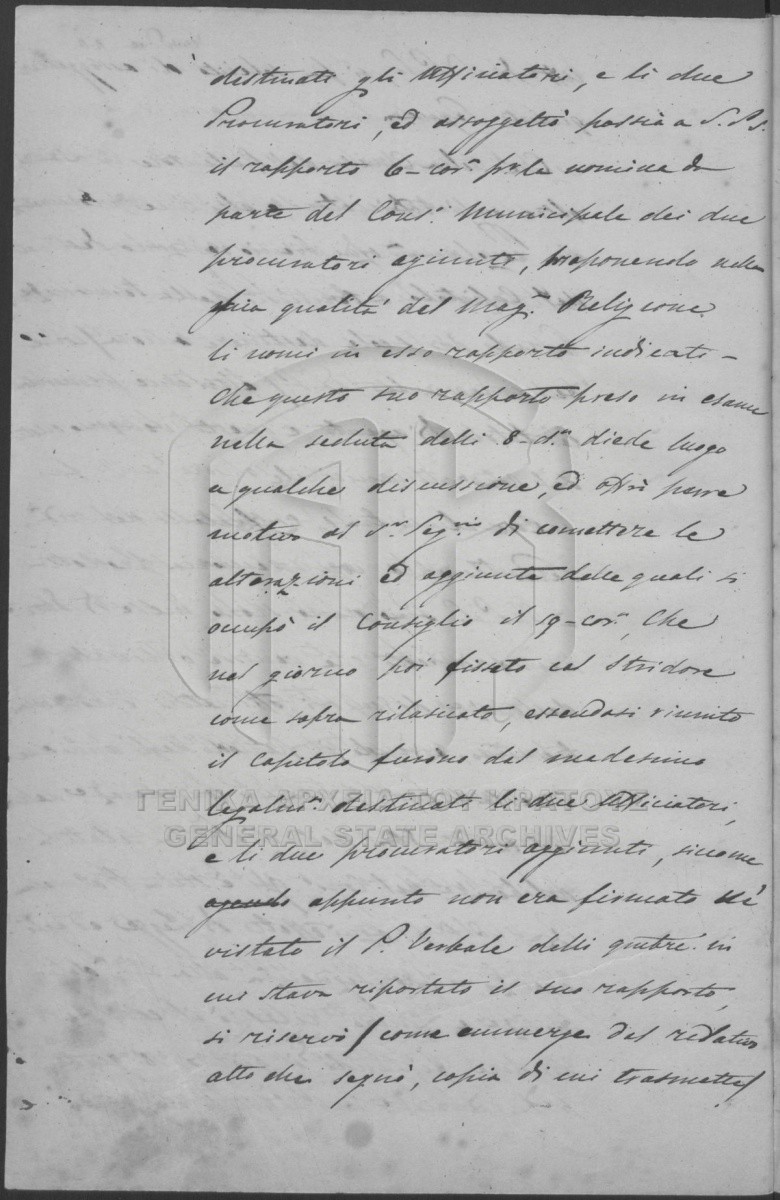 destinati gli Uffiziatori, e li due
Procuratori, ed assoggettò poscia a S. S.
il rapporto 6 cor.e p. la nomina da
parte del Cons.o Municipale dei due
procuratori agiunti, proponendo nella
sua qualità del Mag.o Religione
li nomi in esso rapporto indicati –
Che questo suo rapporto preso in esame
nella seduta delli 8 d.o diede luogo
a qualche discussione, ed offrì pure
motivo al S.r Seg.rio di comettere le
alterazioni ed aggiunta delle quali si
occupò il Consiglio il 19 cor.e, Che
nel giorno poi fissato col Stridore
come sopra rilasciato, essendosi riunito
il Capitolo furono dal medesimo
legalm.e destinati li due Uffiziatori,
e li due procuratori aggiunti, siccome
appunto non era firmato nè
vistato il P. Verbale delli in
cui stava riportato il suo rapporto,
si riservò / come emmerge dal relativo
atto che segnò, copia di cui trasmette /
ΓΕΝΙΚΑ ΑΡΧΕΙΑ ΤΟΥ ΚΡΑΤΟΥΣ
GENERAL STATE ARCHIVES